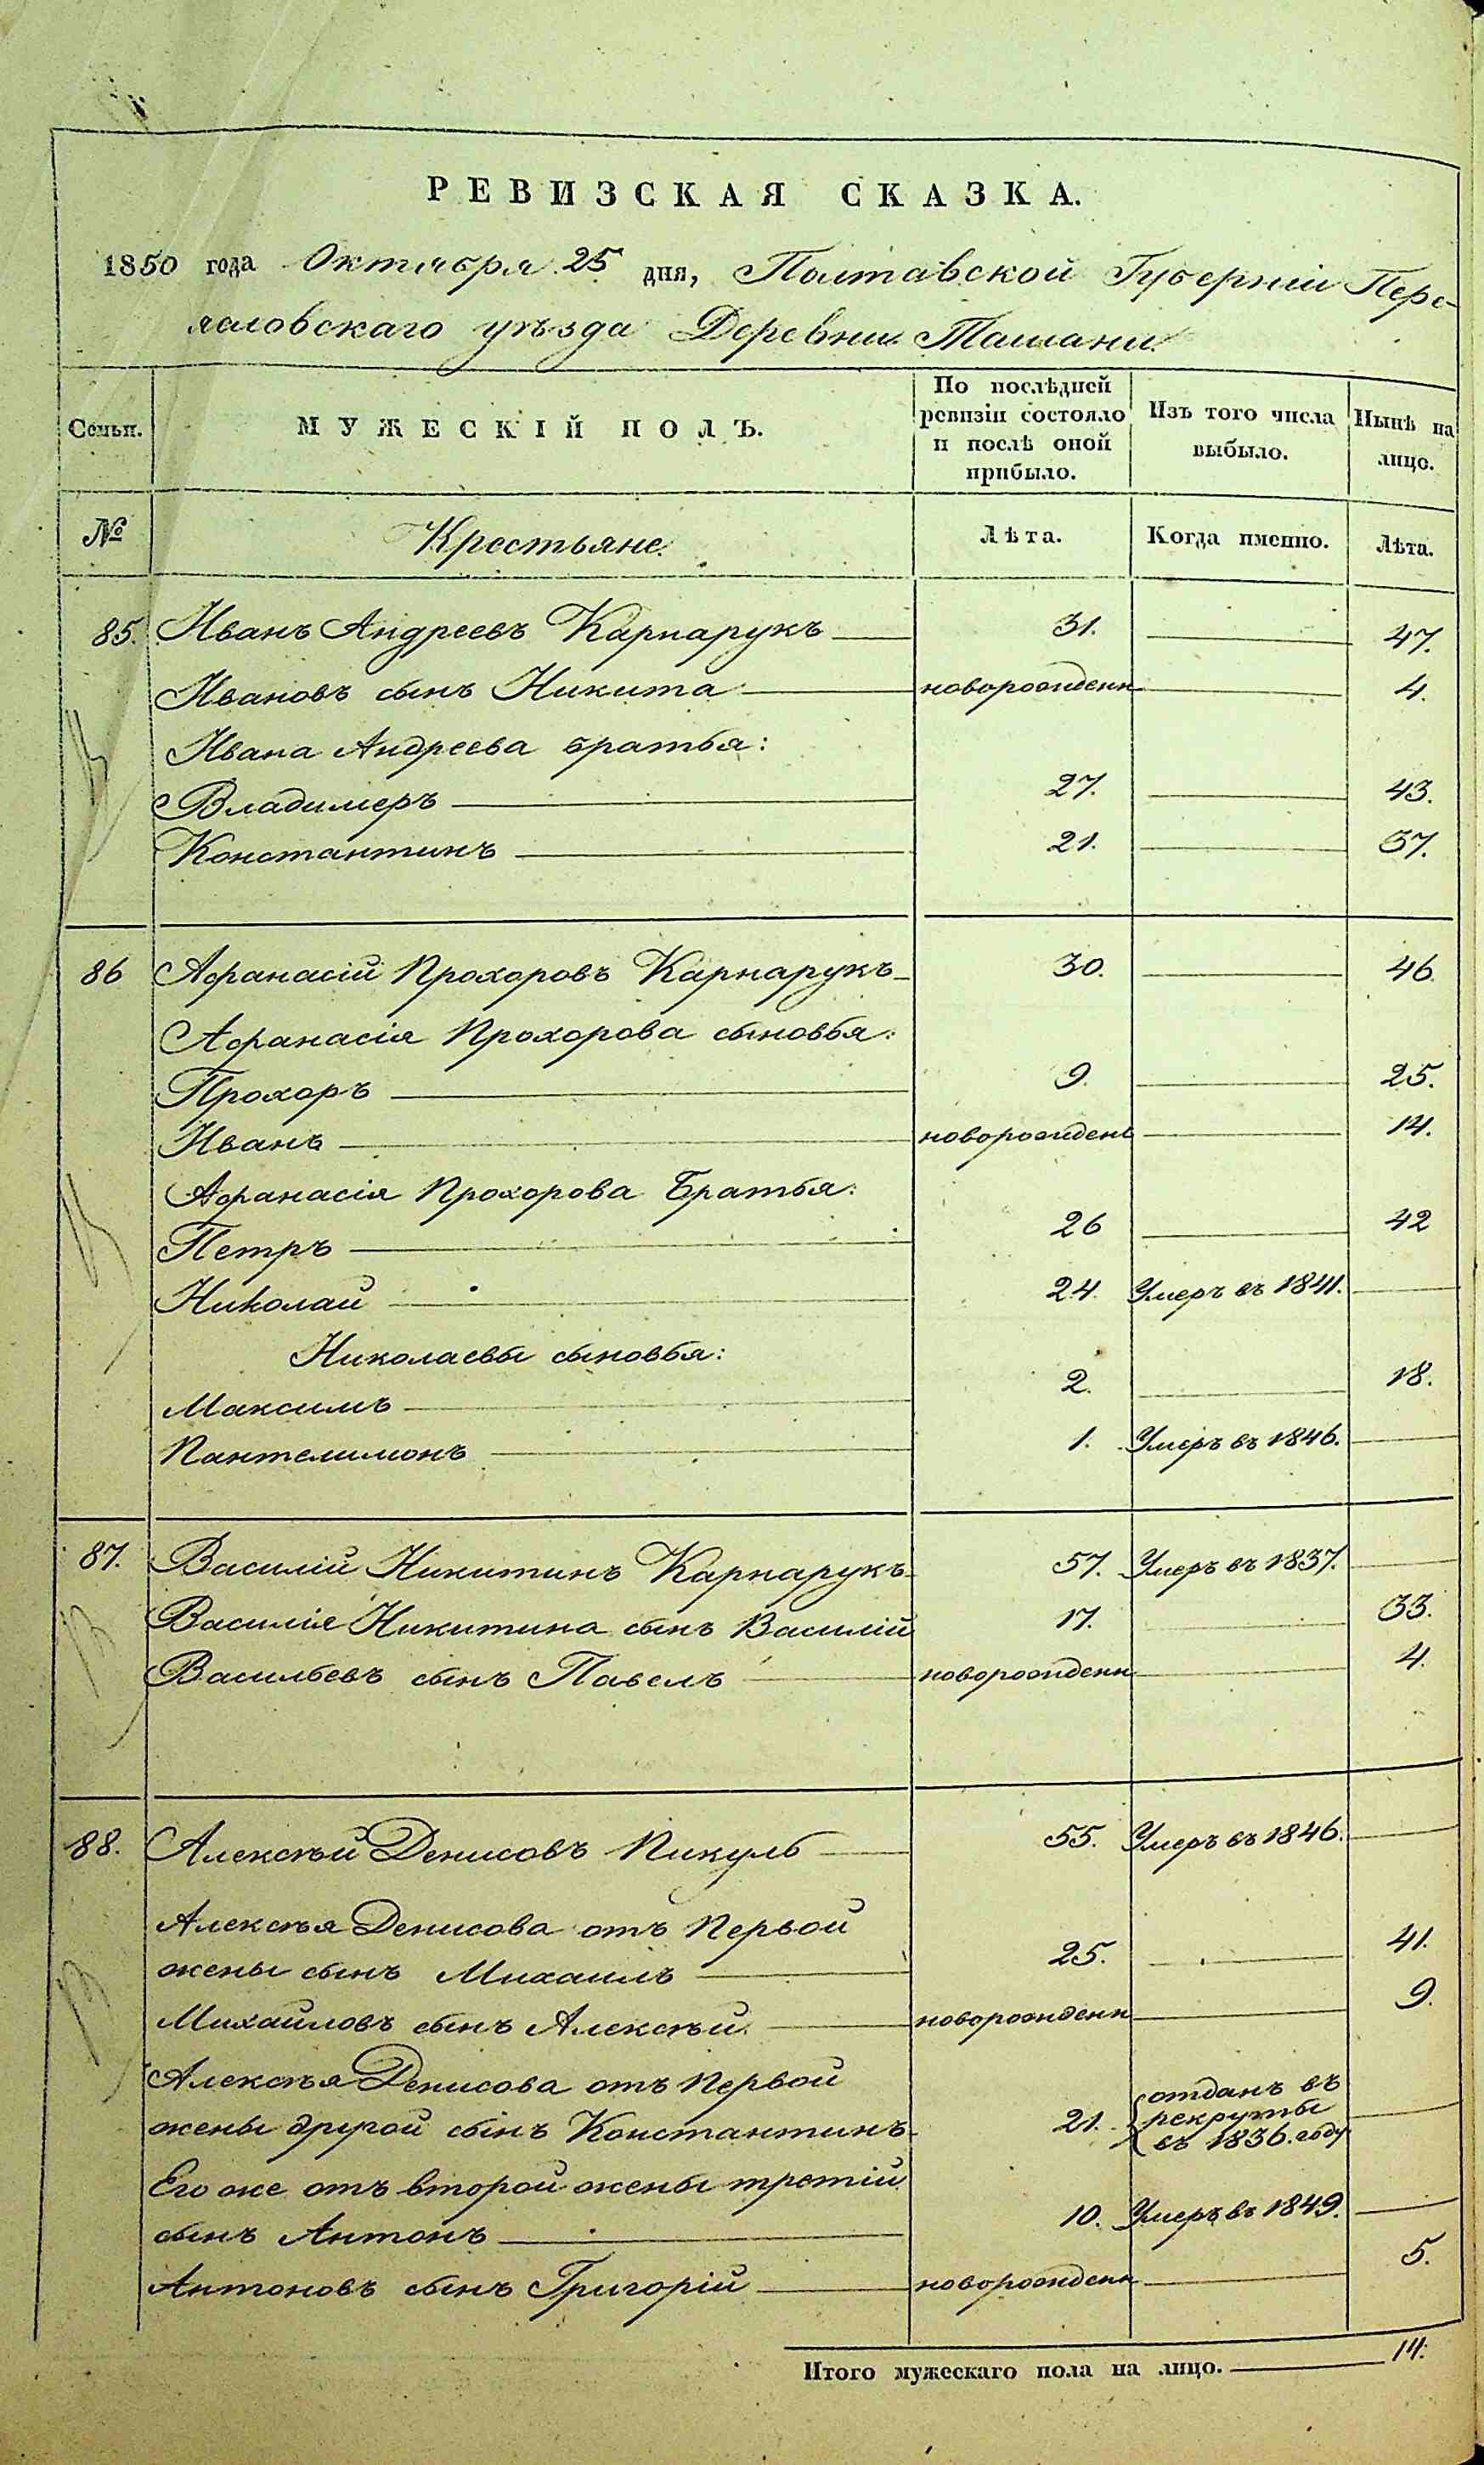 РЕВИЗСКАЯ СКАЗКА.
1850 года Октября 25 дня, Полтавской Губерніи Пере-
яславскаго уѣзда Деревни Ташани.
Семьи. МУЖЕСКІЙ ПОЛЪ. По послѣдней ревизіи состояло и послѣ оной прибыло. Изъ того числа выбыло. Нынѣ на лицо.
№ Крестьяне. Лѣта. Когда именно. Лѣта.
85. Иванъ Андреевъ Карнарукъ 31. 47.
Ивановъ сынъ Никита новорожденн 4.
Ивана Андреева братья:
Владимеръ 27. 43.
Константинъ 21. 37.
86 Афанасій Прохоровъ Карнарукъ 30. 46.
Афанасія Прохорова сыновья:
Прохоръ 9. 25.
Иванъ новорожден 14.
Афанасія Прохорова Братья:
Петръ 26 42
Николай 24. Умеръ въ 1841.
Николаевы сыновья:
Максимъ 2. 18.
Пантелимонъ 1. Умеръ въ 1846.
87. Василій Никитинъ Карнарукъ 57. Умеръ въ 1837.
Василія Никитина сынъ Василій 17. 33.
Васильевъ сынъ Павелъ новорожденн 4.
88. Алексѣй Денисовъ Пикуль 55. Умеръ въ 1846.
Алексѣя Денисова отъ Первой
жены сынъ Михаилъ 25. 41.
Михайловъ сынъ Алексѣй новорожденн 9.
Алексѣя Денисова отъ Первой
жены другой сынъ Константинъ 21. отданъ въ рекруты въ 1836. году
Его же отъ второй жены третій
сынъ Антонъ 10. Умеръ въ 1849.
Антоновъ сынъ Григорій новорожденн 5.
Итого мужескаго пола на лицо. 14.